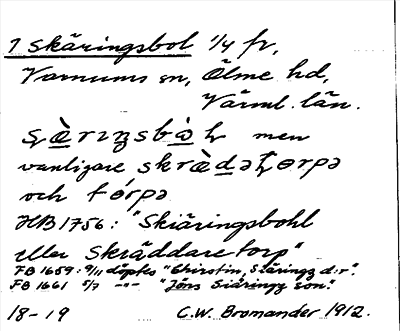 1 Skäringsbol 1/4 fr,
Varnums sn, Ölme hd,
Värml. län.
men
vanligare
och
HB 1756: "Skiäringsbohl
eller Skräddaretorp"
FB 1659: 9/11 döptes "Chirstin, Siäringz d:r".
FB 1661 5/7 -"- "Jöns Siäringz son."
18-19 C.W. Bromander 1912.